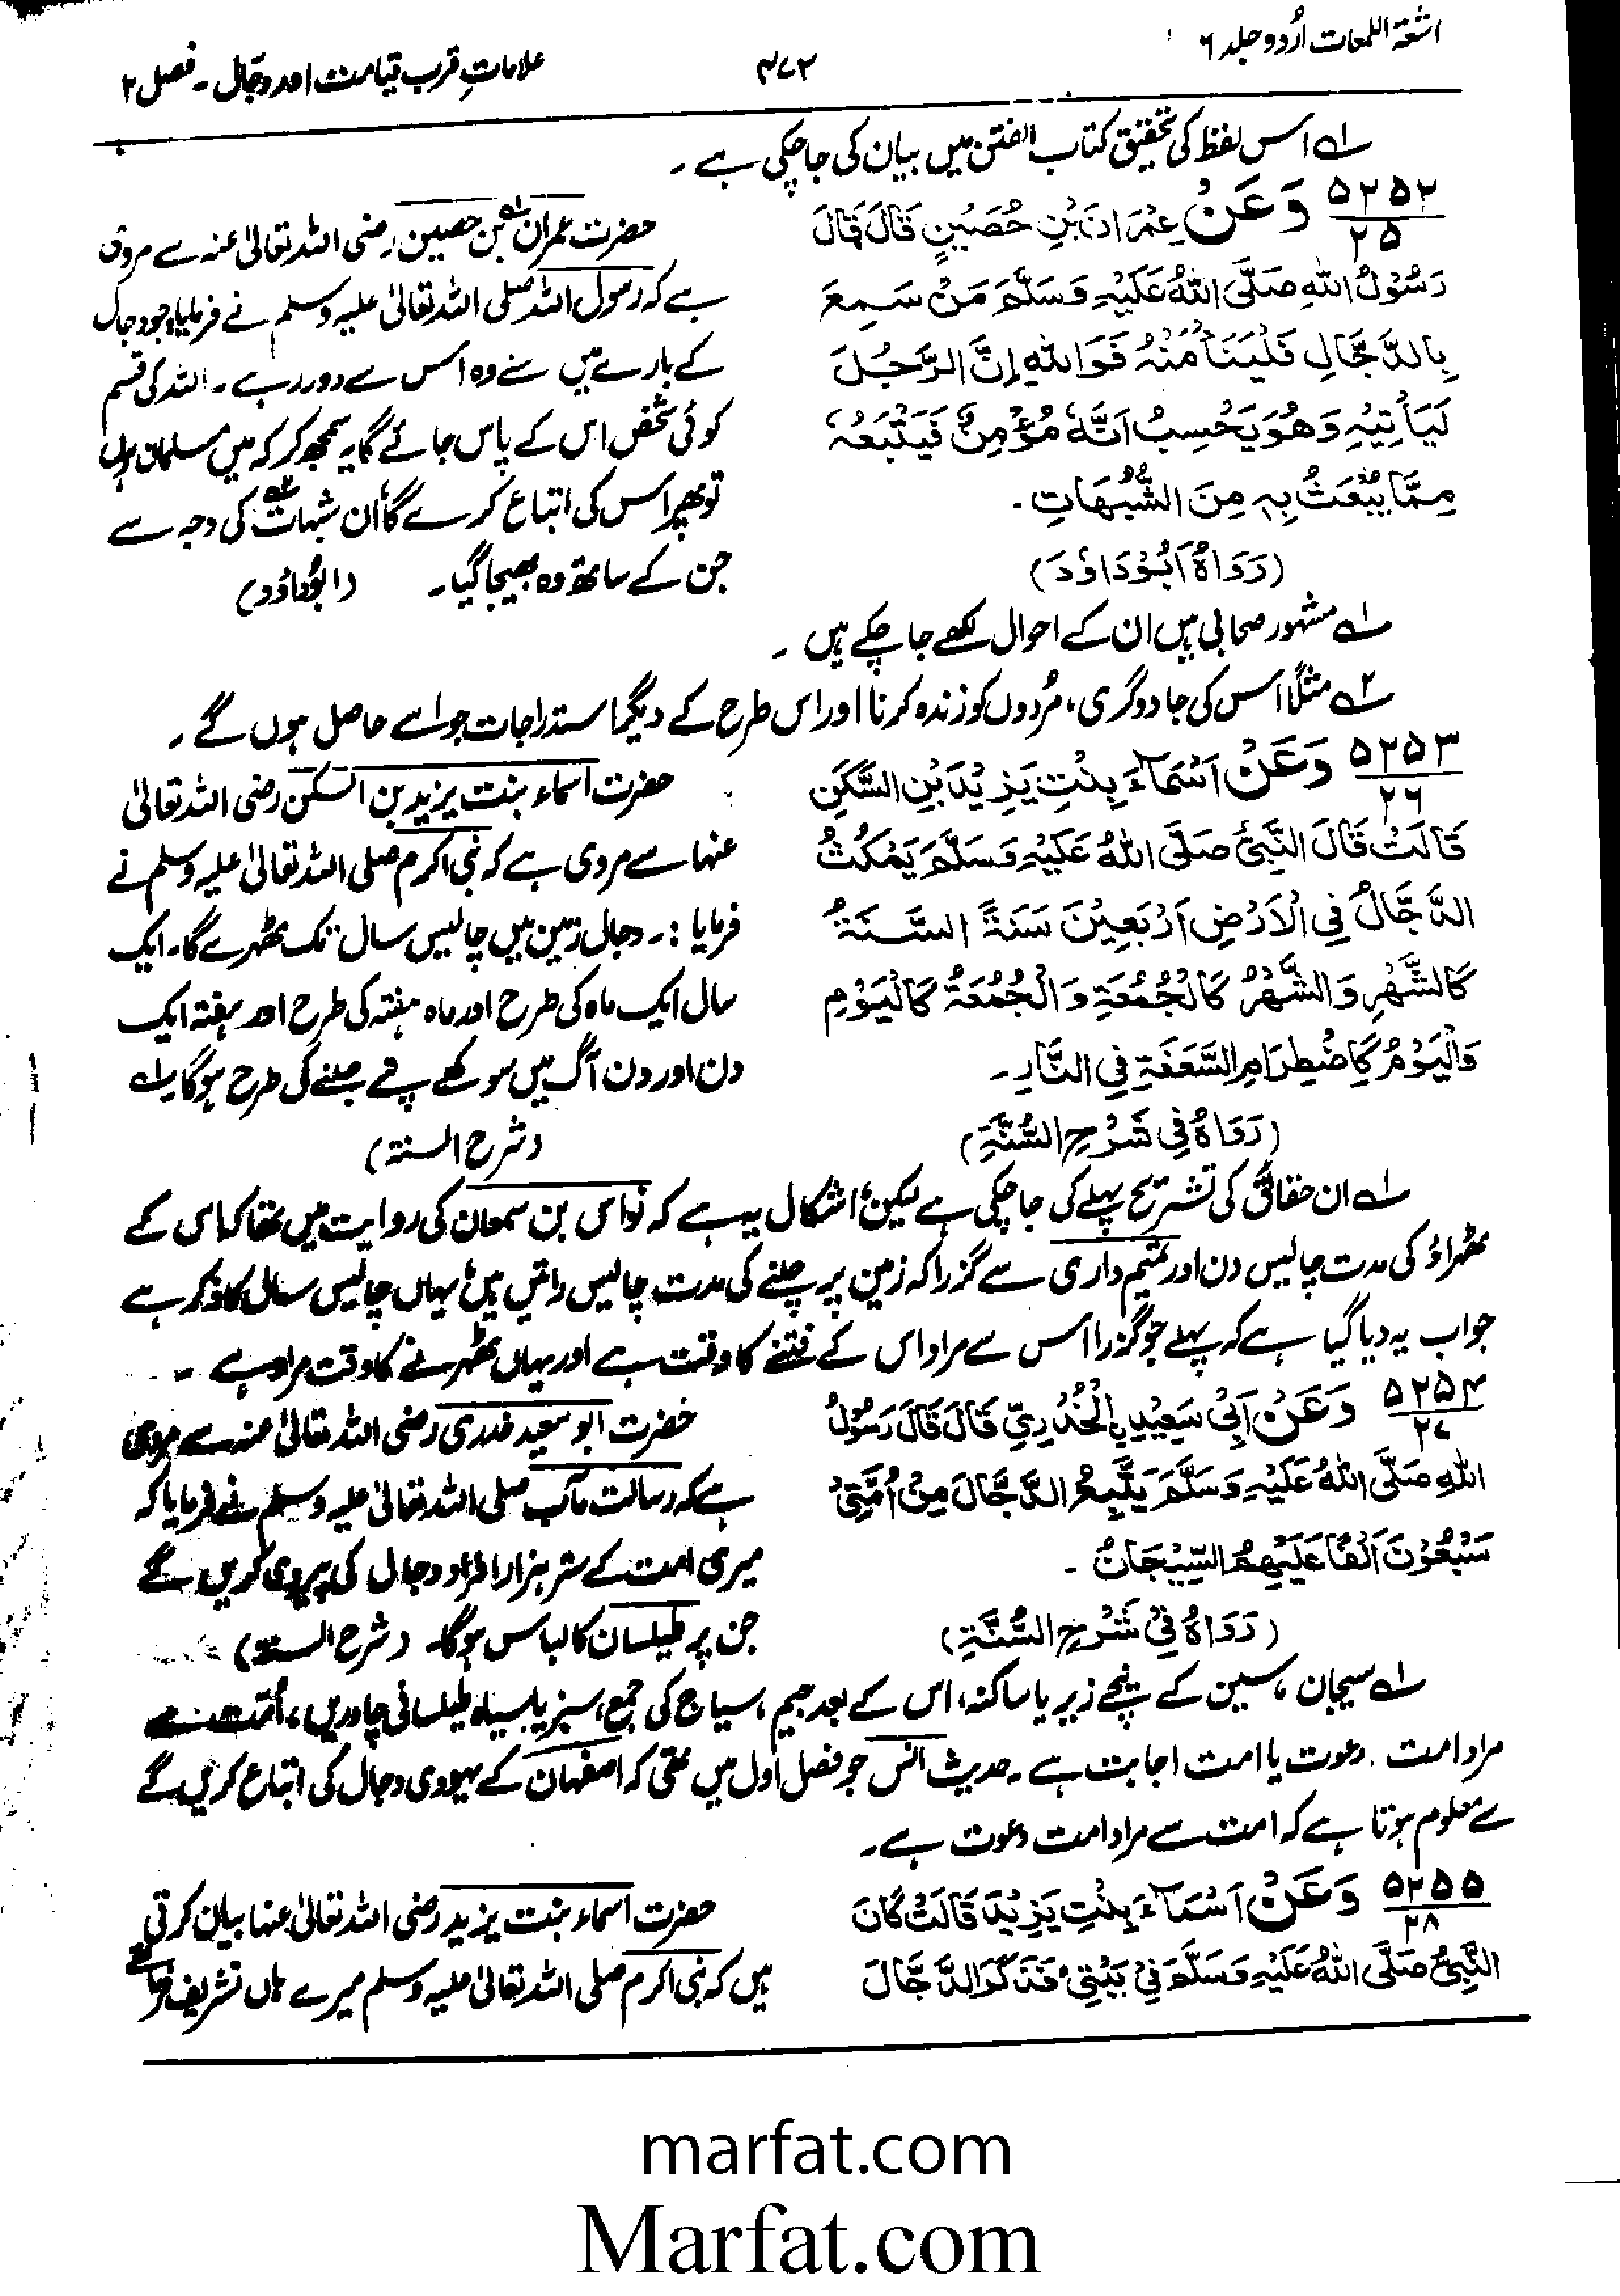 اشعۃ اللمعات اُردو جلد ۶
۴۷۲
علاماتِ قرب قیامت اور دجّال ۔ فصل ۲
۱؎ اس لفظ کی تحقیق کتاب الفتن میں بیان کی جا چکی ہے ۔
۵۲۵۲
۲۵
وَعَنْ عِمْرَانَ بْنِ حُصَيْنٍ قَالَ قَالَ
رَسُوْلُ اللهِ صَلَّى اللهُ عَلَيْهِ وَسَلَّمَ مَنْ سَمِعَ
بِالدَّجَّالِ فَلْيَنَأْ مِنْهُ فَوَاللهِ اِنَّ الرَّجُلَ
لَيَأْتِيْهِ وَهُوَ يَحْسِبُ اَنَّهٗ مُؤْمِنٌ فَيَتْبَعُهٗ
مِمَّا يُبْعَثُ بِهٖ مِنَ الشُّبُهَاتِ ۔
(رَوَاهُ اَبُوْدَاوٗدَ)
حضرت عمران۱؎ بن حصین رضی اللہ تعالیٰ عنہ سے مروی
ہے کہ رسول اللہ صلی اللہ تعالیٰ علیہ وسلم نے فرمایا جو دجال
کے بارے میں سنے وہ اس سے دور رہے ۔ اللہ کی قسم
کوئی شخص اس کے پاس جائے گا یہ سمجھ کر کہ میں مسلمان ہوں
تو پھر اس کی اتباع کرے گا ان شبہات۲؎ کی وجہ سے
جن کے ساتھ وہ بھیجا گیا ۔ (ابوداؤد)
۱؎ مشہور صحابی ہیں ان کے احوال لکھے جا چکے ہیں ۔
۲؎ مثلًا اس کی جادوگری، مُردوں کو زندہ کرنا اور اس طرح کے دیگر استدراجات جو اسے حاصل ہوں گے ۔
۵۲۵۳
۲۶
وَعَنْ اَسْمَاءَ بِنْتِ يَزِيْدَ بْنِ السَّكَنِ
قَالَتْ قَالَ النَّبِيُّ صَلَّى اللهُ عَلَيْهِ وَسَلَّمَ يَمْكُثُ
الدَّجَّالُ فِى الْاَرْضِ اَرْبَعِيْنَ سَنَةً السَّنَةُ
كَالشَّهْرِ وَالشَّهْرُ كَالْجُمُعَةِ وَالْجُمُعَةُ كَالْيَوْمِ
وَالْيَوْمُ كَاِضْطِرَامِ السَّعَفَةِ فِى النَّارِ ۔
(رَوَاهُ فِىْ شَرْحِ السُّنَّةِ)
حضرت اسماء بنت یزید بن السکن رضی اللہ تعالیٰ
عنہا سے مروی ہے کہ نبی اکرم صلی اللہ تعالیٰ علیہ وسلم نے
فرمایا :۔ دجال زمین میں چالیس سال تک ٹھہرے گا۔ ایک
سال ایک ماہ کی طرح اور ماہ ہفتہ کی طرح اور ہفتہ ایک
دن اور دن آگ میں سوکھے پتے جلنے کی طرح ہوگا۱؎
(شرح السنۃ)
۱؎ ان حقائق کی تشریح پہلے کی جا چکی ہے لیکن اشکال یہ ہے کہ نواس بن سمعان کی روایت میں تھا کہ اس کے
ٹھہراؤ کی مدت چالیس دن اور تمیم داری سے گزرا کہ زمین پر چلنے کی مدت چالیس راتیں ہیں یہاں چالیس سال کا ذکر ہے
جواب یہ دیا گیا ہے کہ پہلے جو گزرا اس سے مراد اس کے فتنے کا وقت ہے اور یہاں ٹھہرنے کا وقت مراد ہے ۔
۵۲۵۴
۲۷
وَعَنْ اَبِىْ سَعِيْدِ الْخُدْرِىِّ قَالَ قَالَ رَسُوْلُ
اللهِ صَلَّى اللهُ عَلَيْهِ وَسَلَّمَ يَتَّبِعُ الدَّجَّالَ مِنْ اُمَّتِىْ
سَبْعُوْنَ اَلْفًا عَلَيْهِمُ السِّيْجَانُ ۔
(رَوَاهُ فِىْ شَرْحِ السُّنَّةِ)
حضرت ابو سعید خدری رضی اللہ تعالیٰ عنہ سے مروی
ہے کہ رسالت مآب صلی اللہ تعالیٰ علیہ وسلم نے فرمایا کہ
میری امت کے ستر ہزار افراد دجال کی پیروی کریں گے
جن پر طیلسان کا لباس ہوگا۔ (شرح السنۃ)
۱؎ سیجان ، سین کے نیچے زیر یا ساکنہ، اس کے بعد جیم ، سیاج کی جمع، سبز یا سیاہ طیلسانی چادریں ، اُمّت سے
مراد امت دعوت یا امت اجابت ہے ۔ حدیث انس جو فصل اول میں تھی کہ اصفہان کے یہودی دجال کی اتباع کریں گے
سے معلوم ہوتا ہے کہ امت سے مراد امت دعوت ہے ۔
۵۲۵۵
۲۸
وَعَنْ اَسْمَاءَ بِنْتِ يَزِيْدَ قَالَتْ كَانَ
النَّبِىُّ صَلَّى اللهُ عَلَيْهِ وَسَلَّمَ فِىْ بَيْتِىْ فَذَكَرَ الدَّجَّالَ
حضرت اسماء بنت یزید رضی اللہ تعالیٰ عنہا بیان کرتی
ہیں کہ نبی اکرم صلی اللہ تعالیٰ علیہ وسلم میرے ہاں تشریف فرما تھے
marfat.com
Marfat.com